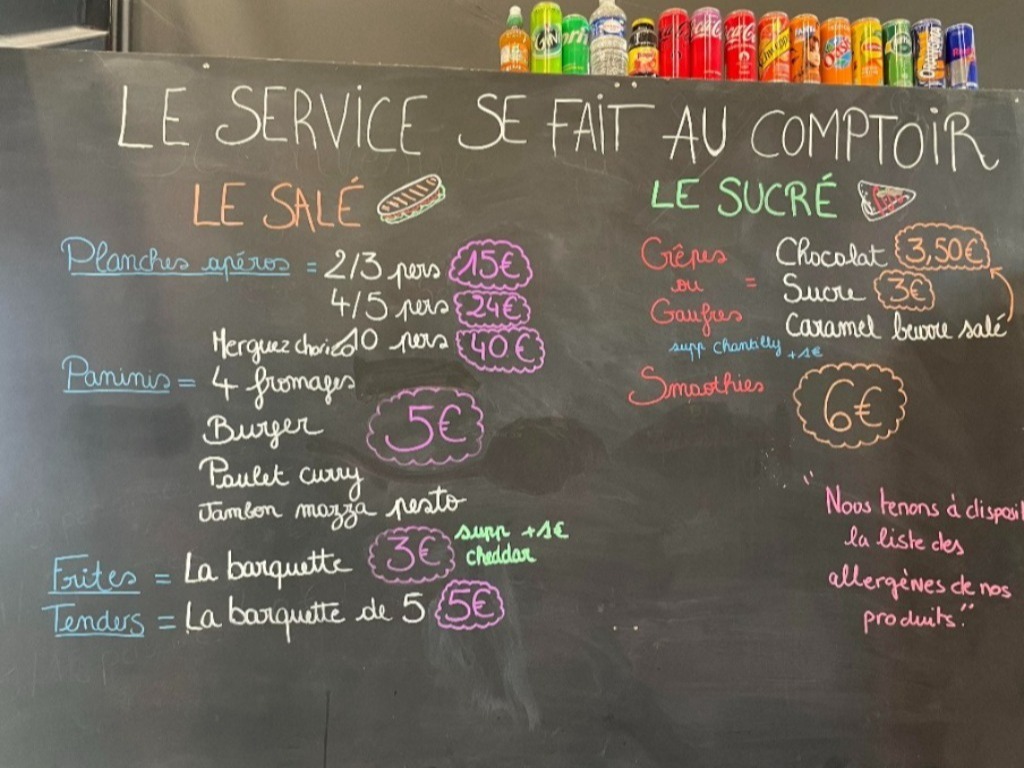 LE SERVICE SE FAIT AU COMPTOIR
LE SALÉ
Planches apéros = 2/3 pers 15€
4/5 pers 24€
Merguez chorizo 10 pers 40€
Paninis = 4 fromages
Burger 5€
Poulet curry
Jambon mozza pesto
Frites = La barquette 3€ supp +1€
cheddar
Tenders = La barquette de 5 5€
LE SUCRÉ
Crêpes
ou
Gaufres
= Chocolat 3,50€
Sucre 3€
Caramel beurre salé
supp chantilly +1€
Smoothies 6€
"Nous tenons à disposi
la liste des
allergènes de nos
produits."